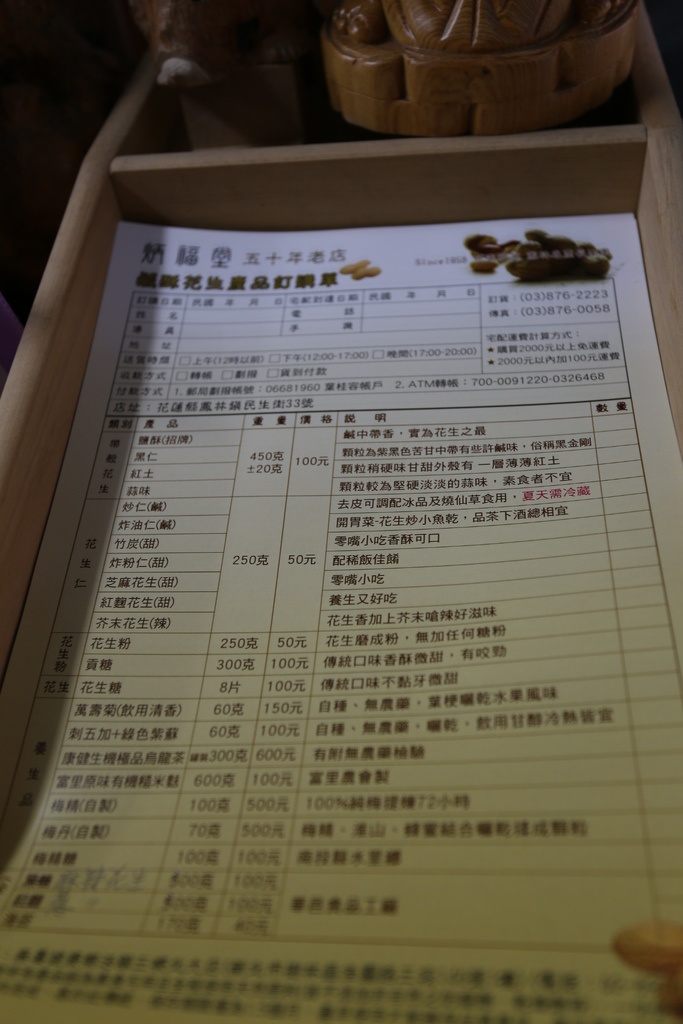 炳福堂 五十年老店 Since1958
鹽酥花生產品訂購單
訂購日期 民國 年 月 日 宅配到達日期 民國 年 月 日
訂貨：(03)876-2223
傳真：(03)876-0058
姓名 電話
傳真 手機
地址
宅配運費計算方式：
★購買2000元以上免運費
★2000元以內加100元運費
送貨時段 □上午(12時以前) □下午(12:00-17:00) □晚間(17:00-20:00)
收款方式 □轉帳 □劃撥 □貨到付款
付款方式 1. 郵局劃撥帳號：06681960 葉桂容帳戶 2. ATM轉帳：700-0091220-0326468
店址：花蓮縣鳳林鎮民生街33號
類別 產品 重量 價格 說明 數量
帶殼花生
鹽酥(招牌) 450克±20克 100元 鹹中帶香，實為花生之最
黑仁 顆粒為紫黑色苦甘中帶有些許鹹味，俗稱黑金剛
紅土 顆粒稍硬味甘甜外殼有一層薄薄紅土
蒜味 顆粒較為堅硬淡淡的蒜味，素食者不宜
花生仁
炒仁(鹹) 250克 50元 去皮可調配冰品及燒仙草食用，夏天需冷藏
炸油仁(鹹) 開胃菜-花生炒小魚乾，品茶下酒總相宜
竹炭(甜) 零嘴小吃香酥可口
炸粉仁(甜) 配稀飯佳餚
芝麻花生(甜) 零嘴小吃
紅麴花生(甜) 養生又好吃
芥末花生(辣) 花生香加上芥末嗆辣好滋味
花生物
花生粉 250克 50元 花生磨成粉，無加任何糖粉
貢糖 300克 100元 傳統口味香酥微甜，有咬勁
花生 花生糖 8片 100元 傳統口味不黏牙微甜
養生品
萬壽菊(飲用清香) 60克 150元 自種、無農藥，葉梗曬乾水果風味
刺五加+綠色紫蘇 60克 100元 自種、無農藥，曬乾、飲用甘醇冷熱皆宜
康健生機極品烏龍茶 罐裝300克 600元 有附無農藥檢驗
富里原味有機糙米麩 600克 100元 富里農會製
梅精(自製) 100克 500元 100%純梅提煉72小時
梅丹(自製) 70克 500元 梅精、淮山、蜂蜜結合曬乾搓成顆粒
梅精糖 100克 100元 南投縣水里鄉
500克 100元
500克 100元
170克 40元